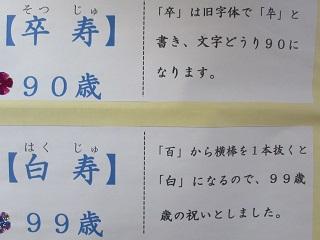 そつ じゅ
【卒 寿】
９０歳
「卒」は旧字体で「卆」と
書き、文字どうり９０に
なります。
はく じゅ
【白 寿】
９９歳
「百」から横棒を１本抜くと
「白」になるので、９９歳
歳の祝いとしました。